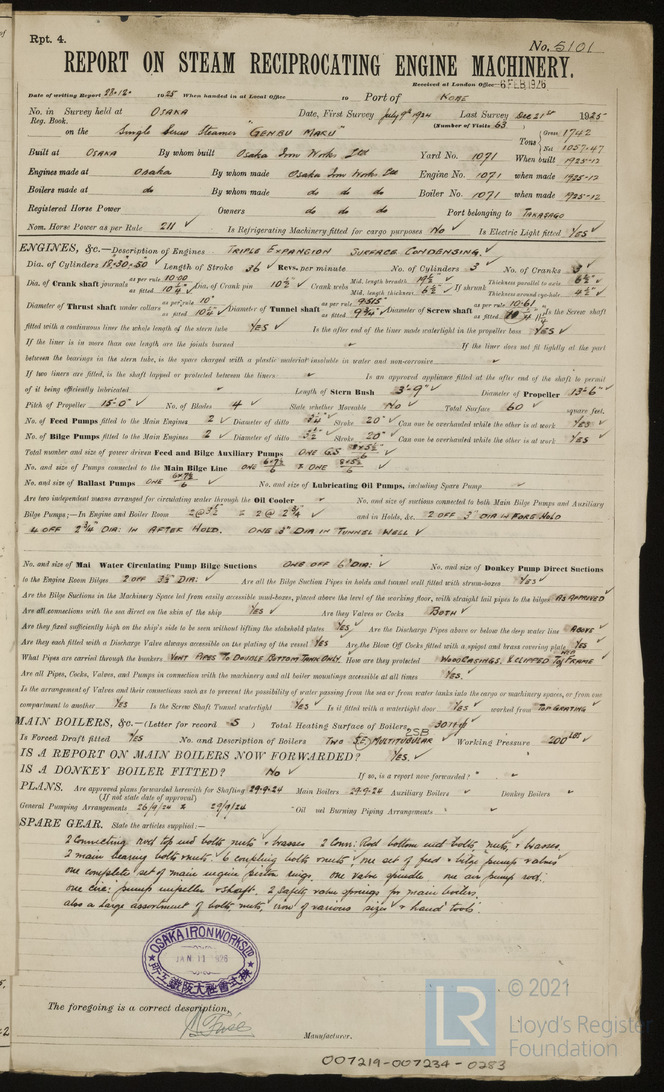 Rpt. 4.
No. 5101
REPORT ON STEAM RECIPROCATING ENGINE MACHINERY.
Received at London Office 6 FEB 1926
Date of writing Report 28.12. 1925 When handed in at Local Office 19 Port of KOBE
No. in Reg. Book. Survey held at OSAKA Date, First Survey July 9th 1924 Last Survey Dec 21st 1925
(Number of Visits 63)
on the Single Screw Steamer "GENBU MARU" Tons Gross 1742 Net 1057.47
Built at OSAKA By whom built Osaka Iron Works Ltd Yard No. 1071 When built 1925-12
Engines made at Osaka By whom made Osaka Iron Works Ltd Engine No. 1071 when made 1925-12
Boilers made at do By whom made do do do Boiler No. 1071 when made 1925-12
Registered Horse Power Owners do do do Port belonging to TAKASAGO
Nom. Horse Power as per Rule 211 ✓ Is Refrigerating Machinery fitted for cargo purposes No ✓ Is Electric Light fitted YES ✓
ENGINES, &c.—Description of Engines TRIPLE EXPANSION SURFACE CONDENSING. ✓
Dia. of Cylinders 18"-30"-50" ✓ Length of Stroke 36 ✓ Revs. per minute No. of Cylinders 3 ✓ No. of Cranks 3 ✓
Dia. of Crank shaft journals as per rule 10.00 as fitted 10¼" ✓ Dia. of Crank pin 10½" ✓ Crank webs Mid. length breadth 19½" ✓ Mid. length thickness 6½" ✓ If shrunk Thickness parallel to axis 6½" ✓ Thickness around eye-hole 4½" ✓
Diameter of Thrust shaft under collars as per rule 10" as fitted 10¼" ✓ Diameter of Tunnel shaft as per rule 9.515" as fitted 9¾" ✓ Diameter of Screw shaft as per rule 10.61 as fitted Is the Screw shaft
fitted with a continuous liner the whole length of the stern tube YES ✓ Is the after end of the liner made watertight in the propeller boss YES ✓
If the liner is in more than one length are the joints burned ✓ If the liner does not fit tightly at the part
between the bearings in the stern tube, is the space charged with a plastic material insoluble in water and non-corrosive ✓
If two liners are fitted, is the shaft lapped or protected between the liners ✓ Is an approved appliance fitted at the after end of the shaft to permit
of it being efficiently lubricated ✓ Length of Stern Bush 3'-9" ✓ Diameter of Propeller 13'-6" ✓
Pitch of Propeller 15'-0" ✓ No. of Blades 4 ✓ State whether Moveable No ✓ Total Surface 60 ✓ square feet.
No. of Feed Pumps fitted to the Main Engines 2 ✓ Diameter of ditto ✓ Stroke 20" ✓ Can one be overhauled while the other is at work YES ✓
No. of Bilge Pumps fitted to the Main Engines 2 ✓ Diameter of ditto 3½" ✓ Stroke 20" ✓ Can one be overhauled while the other is at work YES ✓
Total number and size of power driven Feed and Bilge Auxiliary Pumps ONE
No. and size of Pumps connected to the Main Bilge Line ONE & ONE
No. and size of Ballast Pumps ONE ✓ No. and size of Lubricating Oil Pumps, including Spare Pump ✓
Are two independent means arranged for circulating water through the Oil Cooler ✓ No. and size of suctions connected to both Main Bilge Pumps and Auxiliary
Bilge Pumps;—In Engine and Boiler Room 2 @ 3½" 2 @ 2¾" ✓ and in Holds, &c. 2 OFF 3" DIA IN FORE HOLD
4 OFF 2¾" DIA: IN AFTER HOLD. ONE 3" DIA IN TUNNEL WELL ✓
No. and size of Main Water Circulating Pump Bilge Suctions ONE OFF 6" DIA: ✓ No. and size of Donkey Pump Direct Suctions
to the Engine Room Bilges 2 OFF 3½" DIA: ✓ Are all the Bilge Suction Pipes in holds and tunnel well fitted with strum-boxes YES ✓
Are the Bilge Suctions in the Machinery Space led from easily accessible mud-boxes, placed above the level of the working floor, with straight tail pipes to the bilges AS APPROVED
Are all connections with the sea direct on the skin of the ship YES ✓ Are they Valves or Cocks BOTH ✓
Are they fixed sufficiently high on the ship's side to be seen without lifting the stokehold plates YES ✓ Are the Discharge Pipes above or below the deep water line ABOVE ✓
Are they each fitted with a Discharge Valve always accessible on the plating of the vessel YES ✓ Are the Blow Off Cocks fitted with a spigot and brass covering plate YES ✓
What Pipes are carried through the bunkers VENT PIPES TO DOUBLE BOTTOM TANK ONLY. How are they protected WOOD CASINGS, & CLIPPED TO FRAME
Are all Pipes, Cocks, Valves, and Pumps in connection with the machinery and all boiler mountings accessible at all times YES. ✓
Is the arrangement of Valves and their connections such as to prevent the possibility of water passing from the sea or from water tanks into the cargo or machinery spaces, or from one
compartment to another YES ✓ Is the Screw Shaft Tunnel watertight YES ✓ Is it fitted with a watertight door YES ✓ worked from TOP GRATING ✓
MAIN BOILERS, &c.—(Letter for record S ) Total Heating Surface of Boilers
Is Forced Draft fitted YES ✓ No. and Description of Boilers TWO 2SB MULTITUBULAR ✓ Working Pressure 200 LBS ✓
IS A REPORT ON MAIN BOILERS NOW FORWARDED? YES. ✓
IS A DONKEY BOILER FITTED? No ✓ If so, is a report now forwarded? ✓
PLANS. Are approved plans forwarded herewith for Shafting 29.9.24 Main Boilers 29.9.24 Auxiliary Boilers ✓ Donkey Boilers ✓
(If not state date of approval)
General Pumping Arrangements 26/9/24 & 29/9/24 Oil fuel Burning Piping Arrangements ✓
SPARE GEAR. State the articles supplied:—
2 Connecting rod top end bolts nuts & brasses 2 Conn: Rod bottom end bolts, nuts, & brasses.
2 main bearing bolts & nuts. 6 coupling bolts & nuts ✓ one set of feed & bilge pump valves
one complete set of main engine piston rings. one valve spindle. one air pump rod.
one circ: pump impeller & shaft. 2 safety valve springs for main boiler.
also a large assortment of bolts, nuts, iron of various sizes & hand tools.
OSAKA IRON WORKS LTD
JAN 11 1926
株式會社大阪鐵工所
The foregoing is a correct description,
Manufacturer.
© 2021
LR
Lloyd's Register
Foundation
007219-007234-0283